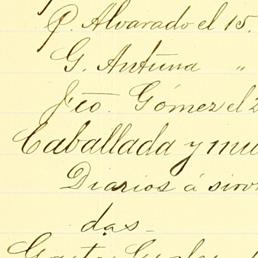 P. Alvarado el 15.
G. Antuna "
Fco. Gómez el 2
Caballada y mu
Diarios á sirv
das-